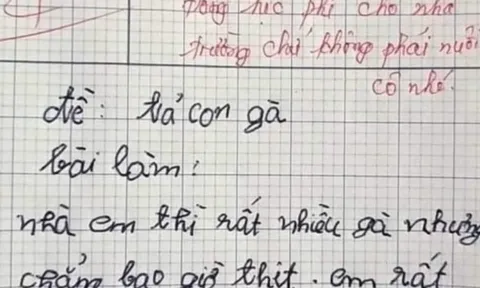 đóng học phí cho nhà
trường chứ không phải nuôi
cô nhé.
đề: tả con gà
bài làm:
nhà em thì rất nhiều gà nhưng
chẳng bao giờ thịt. em rất